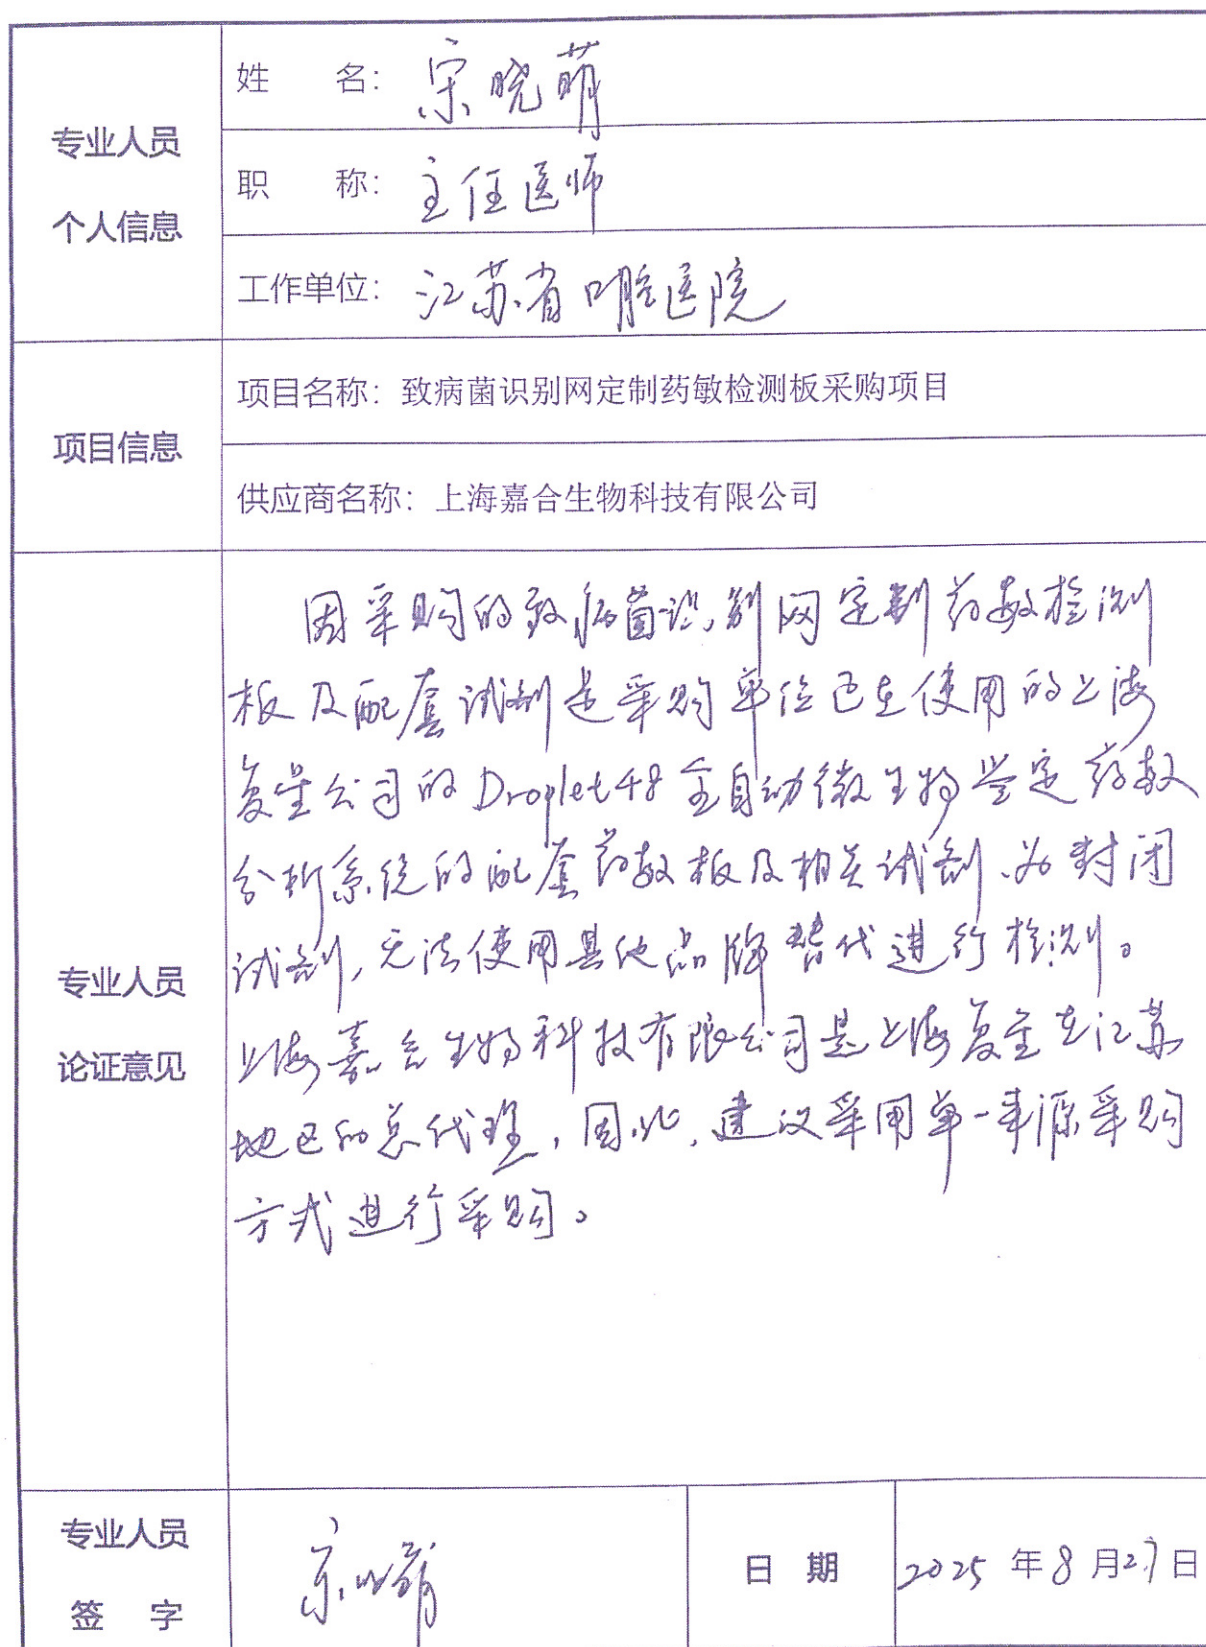 专业人员
个人信息
姓 名：宋晓萌
职 称：主任医师
工作单位：江苏省口腔医院
项目信息
项目名称：致病菌识别网定制药敏检测板采购项目
供应商名称：上海嘉合生物科技有限公司
专业人员
论证意见
因采购的致病菌识别网定制药敏检测
板及配套试剂是采购单位已在使用的上海
复星公司的Droplet48全自动微生物鉴定药敏
分析系统的配套药敏板及相关试剂、为封闭
试剂，无法使用其他品牌替代进行检测。
上海嘉合生物科技有限公司是上海复星在江苏
地区的总代理，因此，建议采用单一来源采购
方式进行采购。
专业人员
签 字
宋晓萌
日 期
2025 年 8 月 27 日